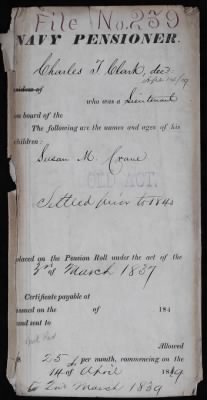 File No. 259
NAVY PENSIONER.
Charles T Clark, dec
who was a Lieutenant
on board of the
The following are the names and ages of his
children:
Susan M. Crane
OLD ACT.
Settled prior to 184
placed on the Pension Roll under the act of the
3rd of March 1837
Certificate payable at
issued on the of 184
and sent to
Allowed
25 per month, commencing on the
14 of April 1819
to 2nd March 1839